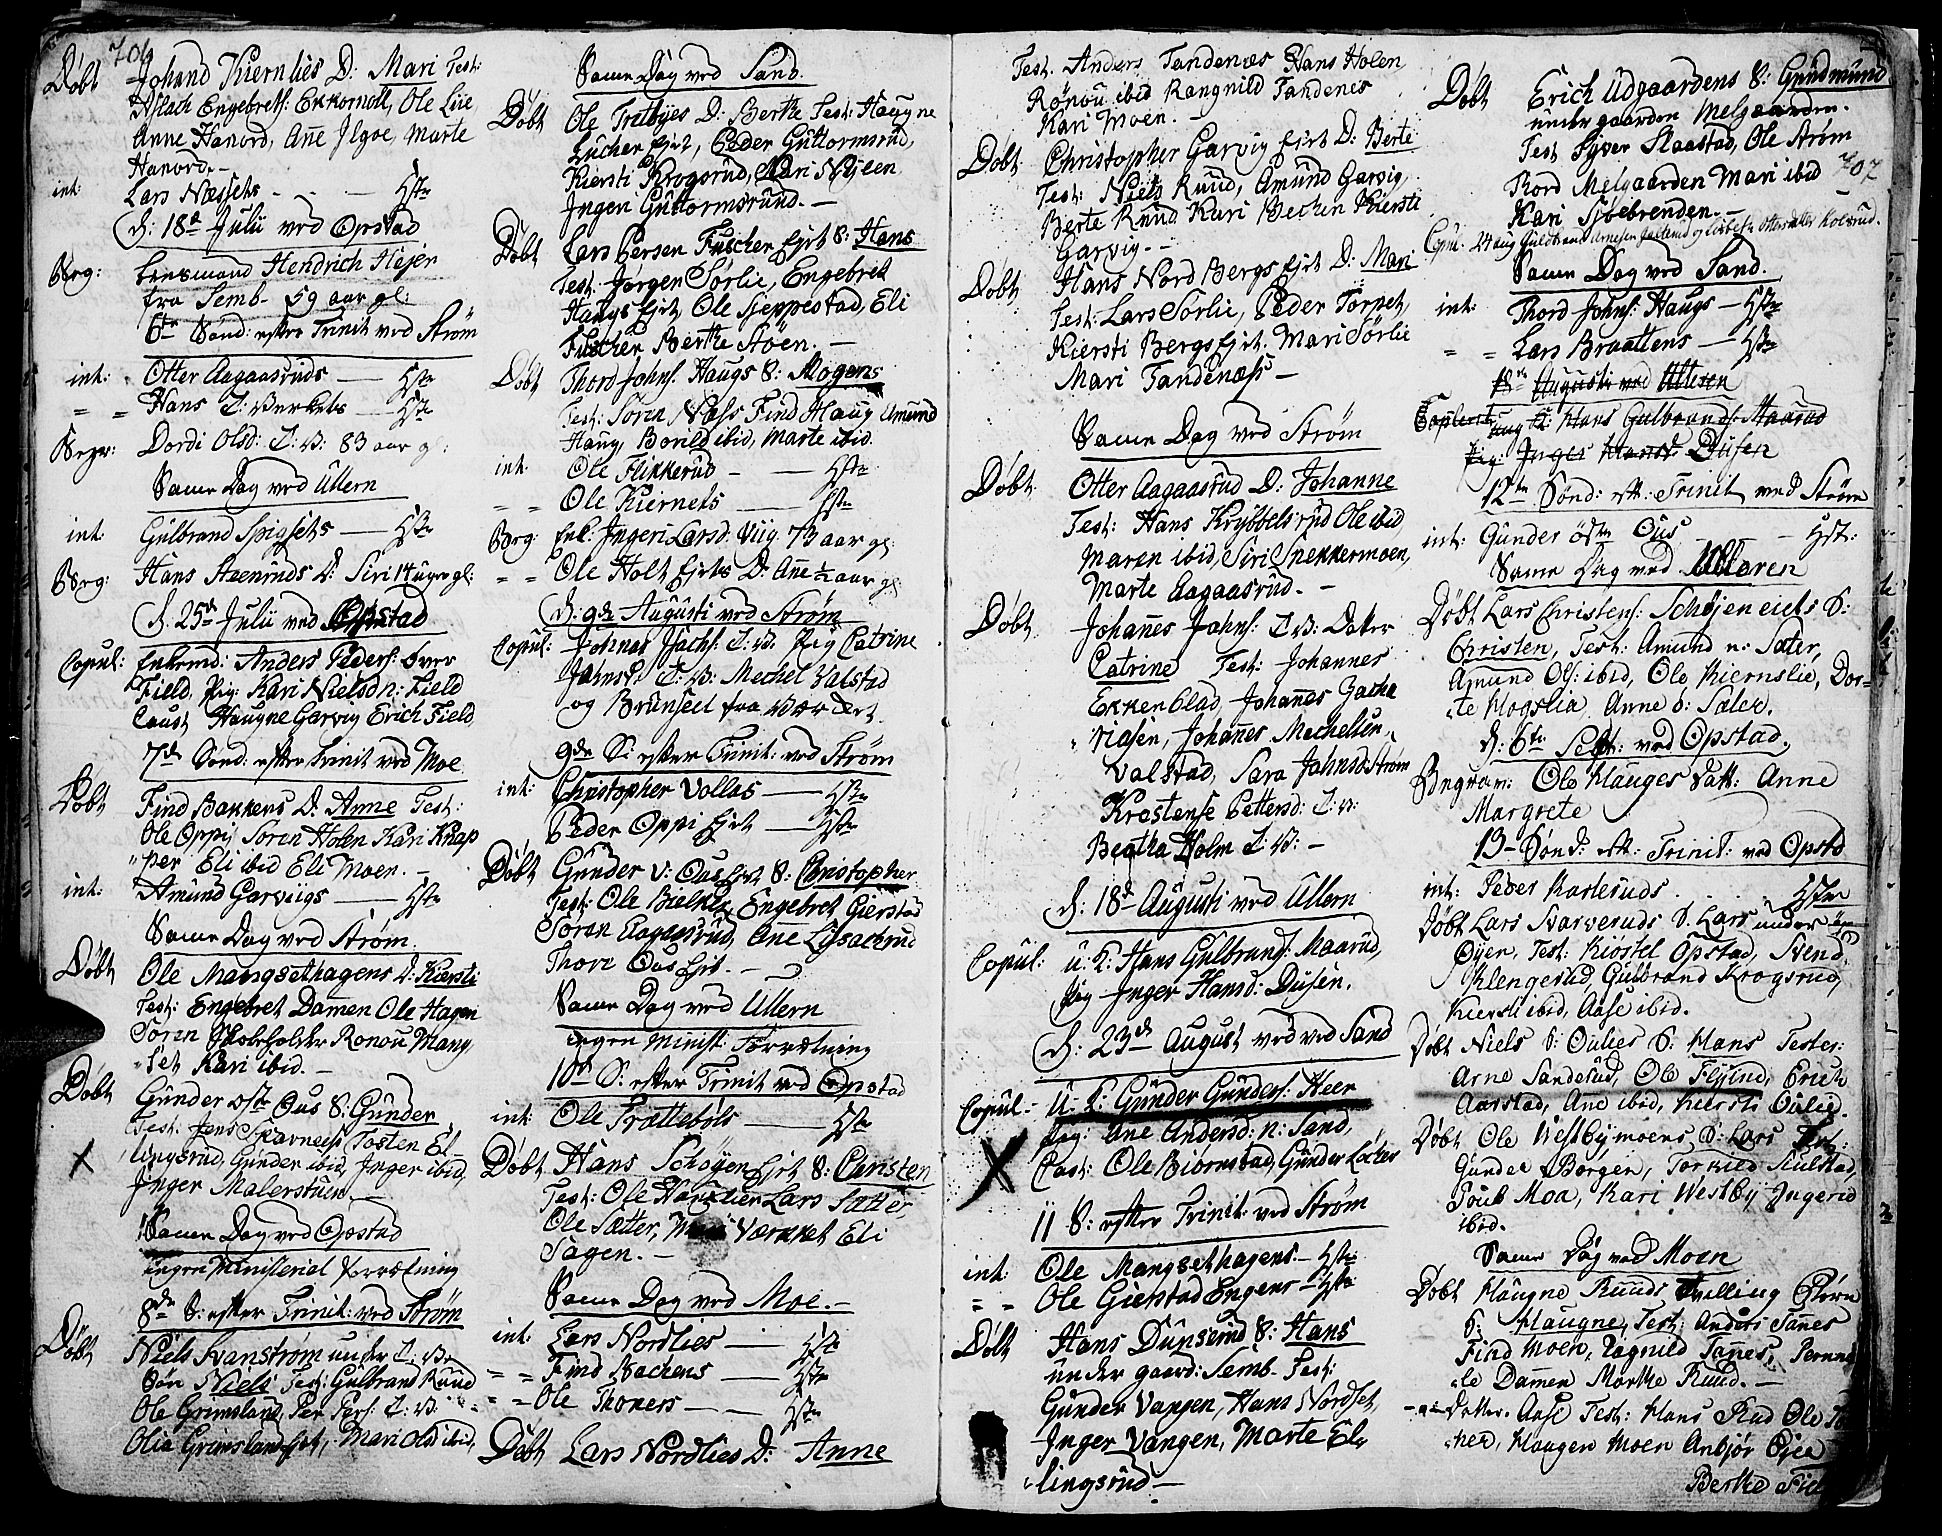 706
Døbt Johand Kiernlies D: Mari Test:
Aslach EngebretS: Ekkornoll, Ole Lüe
Anne Hanord, Ane Ilgoe, Marte
Hanord. –
int: Lars Næssets – – Hstr
d: 18de Julii ved Opstad
Begr: Lensmand Hendrich Hejer
fra Semb. 59 aar gl:
6te Sønd: efter Trinit ved Strøm
int: Otter Aagaasruds — Hstr
" " Hans T: Verkets — Hstr
Begr: Dordi Olsd: T: V: 83 aar gl:
Same Dag ved Ullern
int: Gulbrand Spigsets — Hstr
Begr: Hans Asenruds D: Siri 14 uger gl:
d: 25de Julii ved Opstad
Copul: Enkemd: Anders Peders: över
Field, Pig: Kari Nielsd n: Field
Caut: Haugne Garvig Erich Field
7de Sønd: efter Trinit ved Moe
Døbt Find Bakkens D: Anne Test:
Ole Oppi, Søren Holen Kari Knap
"per Eli ibid Eli Moen. –
int: Amund Garviigs — Hstr
Same Dag ved Strøm
Døbt Ole Mangsethagens D: Kiersti
Test: Engebret Dammen Ole Hagen
Søren Skoleholder Ronou Mang
"set Kari ibid. –
Døbt Gunder øste Ous S: Gunder
Test: Jens Skarness, Tosten El
"lingsrud, Gunder ibid, Inger ibid,
Inger Malerstuen. –
Same Dag ved Opstad
ingen Ministerial Forretning
8de S: efter Trinit: ved Strøm
Døbt Niels Svanstrøm under T: V:
Søn Niels Test: Gulbrand Ruud
Ole Grimsland, Per Pers: T: V:
Olia Grimsland, Mari Olsd ibid,
Same Dag ved Sand
Døbt Ole Trætbyes D: Berthe Test: Haugne
Lucher Ejet, Peder Guttormsrud,
Kiersti Krogsrud, Mari Nyeen
Ingen Guttormsrund. –
Døbt Lars Persen Fuscher Ejet S: Hans
Test: Jørgen Sørlie, Engebret
Haugs Ejet, Ole Sjeppestad, Eli
Fuscher Berthe Støen. –
Døbt Thord Johns: Haugs S: Mogens
Test: Søren Næss Find Haug Amund
Haug, Borild ibid, Marte ibid.
int: Ole Flikkerud — Hstr
" " Ole Kiernets — Hstr
Begr: Enk: Ingeri Larsd: Viig. 73 aar gl:
" " Ole Holt Ejets D: Ane ½ aar gl:
d: 9de Augusti ved Strøm
Copul: Johnas Zachs: T: V: Pig Catrine
Jahnsd: T: V: Mechel Valstad
og Brunseel fra Værdet
9de S: efter Trinit: ved Strøm
int: Christopher Vollas — Hstr
Peder Oppi Ejet — Hstr
Døbt Gunder v: Ous Ejet S: Christopher
Test: Ole Bielke, Engebret Gierstad
Søren Aagaasrud, Ane Lysachrud
Thore Ous Ejet. –
Same Dag ved Ullern
ingen Minist: Forretning
10de S: efter Trinit ved Opstad
int: Ole Trættebøls — Hstr
Døbt Hans Schøyen Ejet S: Christen
Test: Ole Lars Sætter,
Ole Sætter, Værket Eli
Sagen. –
Same Dag ved Moe. –
int: Lars Nordlies — Hstr
" " Find Bachens — Hstr
" " Ole Thoners — Hstr
Døbt Lars Nordlies D: Anne
Test: Anders Tandenæs Hans Holen
Rønou ibid Rangnild Tandenes
Kari Moen.
Døbt Christopher Garvig Ejet D: Berte
Test: Niels Ruud, Amund Garvig,
Berte Ruud Kari Bechen Kiersti
Garvig. –
Døbt Hans Nord Bergs Ejet D: Mari
Test: Lars Sørlie, Peder Torpet,
Kiersti Bergs Ejet. Mari Sørlie
Mari Tandenæss –
Same Dag ved Strøm
Døbt Otter Aagaasrud D: Johanne
Test: Hans Krybbelsrud Ole ibid,
Maren ibid, Siri Snekkermoen,
Marte Aagaasrud. –
Døbt Johanes Jahns: T: V: Dater
Catrine Test: Johannes
Ekkenblad, Johanes Zacha
"riasen, Johanes Mechelsen
Valstad, Sara Jahnsd: Strøm
Krestense Pettersd: T: V:
Beatha Holm T: V: –
d: 18de Augusti ved Ullern
Copul: u: K: Hans Gulbrands: Maarud,
Pig Inger Hansd: Dusen.
d: 23de August ved ved Sand
Copul: u: K: Gunder Gunders: Heer
Pig: Ane Andersd: n: Sand,
Caut: Ole Biørnstad, Gunder Locher
11 S: efter Trinit: ved Strøm
int: Ole Mangsethagens – Hstr
" " Ole Gierstad Engens – Hstr
Døbt Hans Dunserud S: Hans
under gaard: Semb. Test:
Gunder Vangen, Hans Nordset,
Inger Vangen, Marte El
"lingsrud –
707
Døbt Erich Udgaardens S: Gundmund
under gaarden Melgaarden.
Test Syver Slaastad, Ole Strøm
Thord Melgaarden Mari ibid
Kari Sjøebrenden. –
Copul: 24 aug Guldbrand Arnesen og Lisbeth Ottersdatter Kolsrud.
Same Dag ved Sand.
int: Thord Johns: Haugs – Hstr
" " Lars Braattens – Hstr
18de Augusti ved Ullern
Copuleret ung K: Hans Gulbrands: Maarud
Pig: Inger Hansd: Dusen
12te Sønd: eft: Trinit ved Strøm
int: Gunder östre Ous – – Hstr:
Same Dag ved Ulleren
Døbt Lars Christens: Schøjen eiets S:
Christen, Test: Amund n: Sæter,
Amund Ols: ibid, Ole Kiernslie, Dor=
"te Hogslia, Anne ö: Sæter.
d: 6te Sebt: ved Opstad.
Begrav: Ole Hauges Datt: Anne
Margrete
13 Sønd: eft: Trinit: ved Opstd
int: Peder Karterids . . Hstr
Døbt Lars Narveruds S: Lars under
Øyen, Test: Kirstel Opstad, Svend
Klengestad, Gulbrand Krogsrud,
Kiersti ibid, Aase ibid.
Døbt Niels S: Oulies S: Hans Testes:
Arne Sanderud, Ole Flytud, Erich
Aarstad, Ane ibid, Kiersti Oulie.
Døbt Ole Westbymoens S: Lars Test:
Gunder Borgen, Torkied Kulstad,
Poul Moe, Kari Westby Ingerid
ibid.
Same Dag ved Moen
Døbt Haugne Ruuds Tvilling Børn
S: Haugne, Test: Anders Tanes
Find Moen, Ragnild Tanes, Pernne
"le Damen Marthe Ruud. –
Datter. Aase Test: Hans Rud Ole
Haugen Moen Anbjør Ojee
Berthe